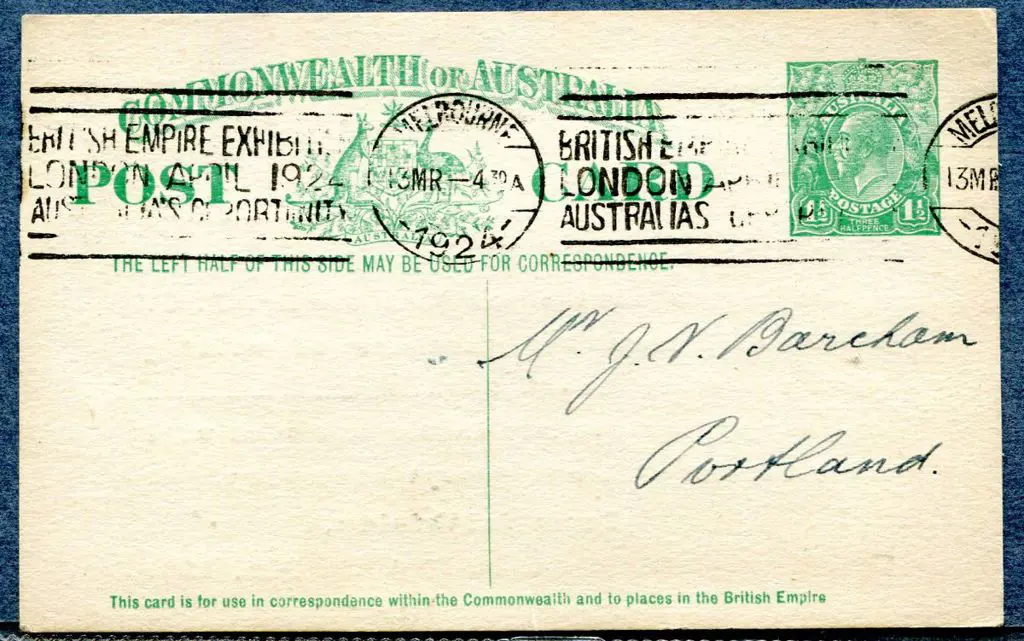 COMMONWEALTH OF AUSTRALIA
POST CARD
BRITISH EMPIRE EXHIBITI
LONDON APRIL 1924
AUSTRALIA'S OPPORTUNITY
MELBOURNE
13MR-4 30A
1924
BRITISH EMPIRE
LONDON APRI
AUSTRALIAS
AUSTRALIA
POSTAGE
1½ 1½
THREE
HALFPENCE
MEL
13MR
THE LEFT HALF OF THIS SIDE MAY BE USED FOR CORRESPONDENCE.
Mr. J. V. Barcham
Portland.
This card is for use in correspondence within the Commonwealth and to places in the British Empire